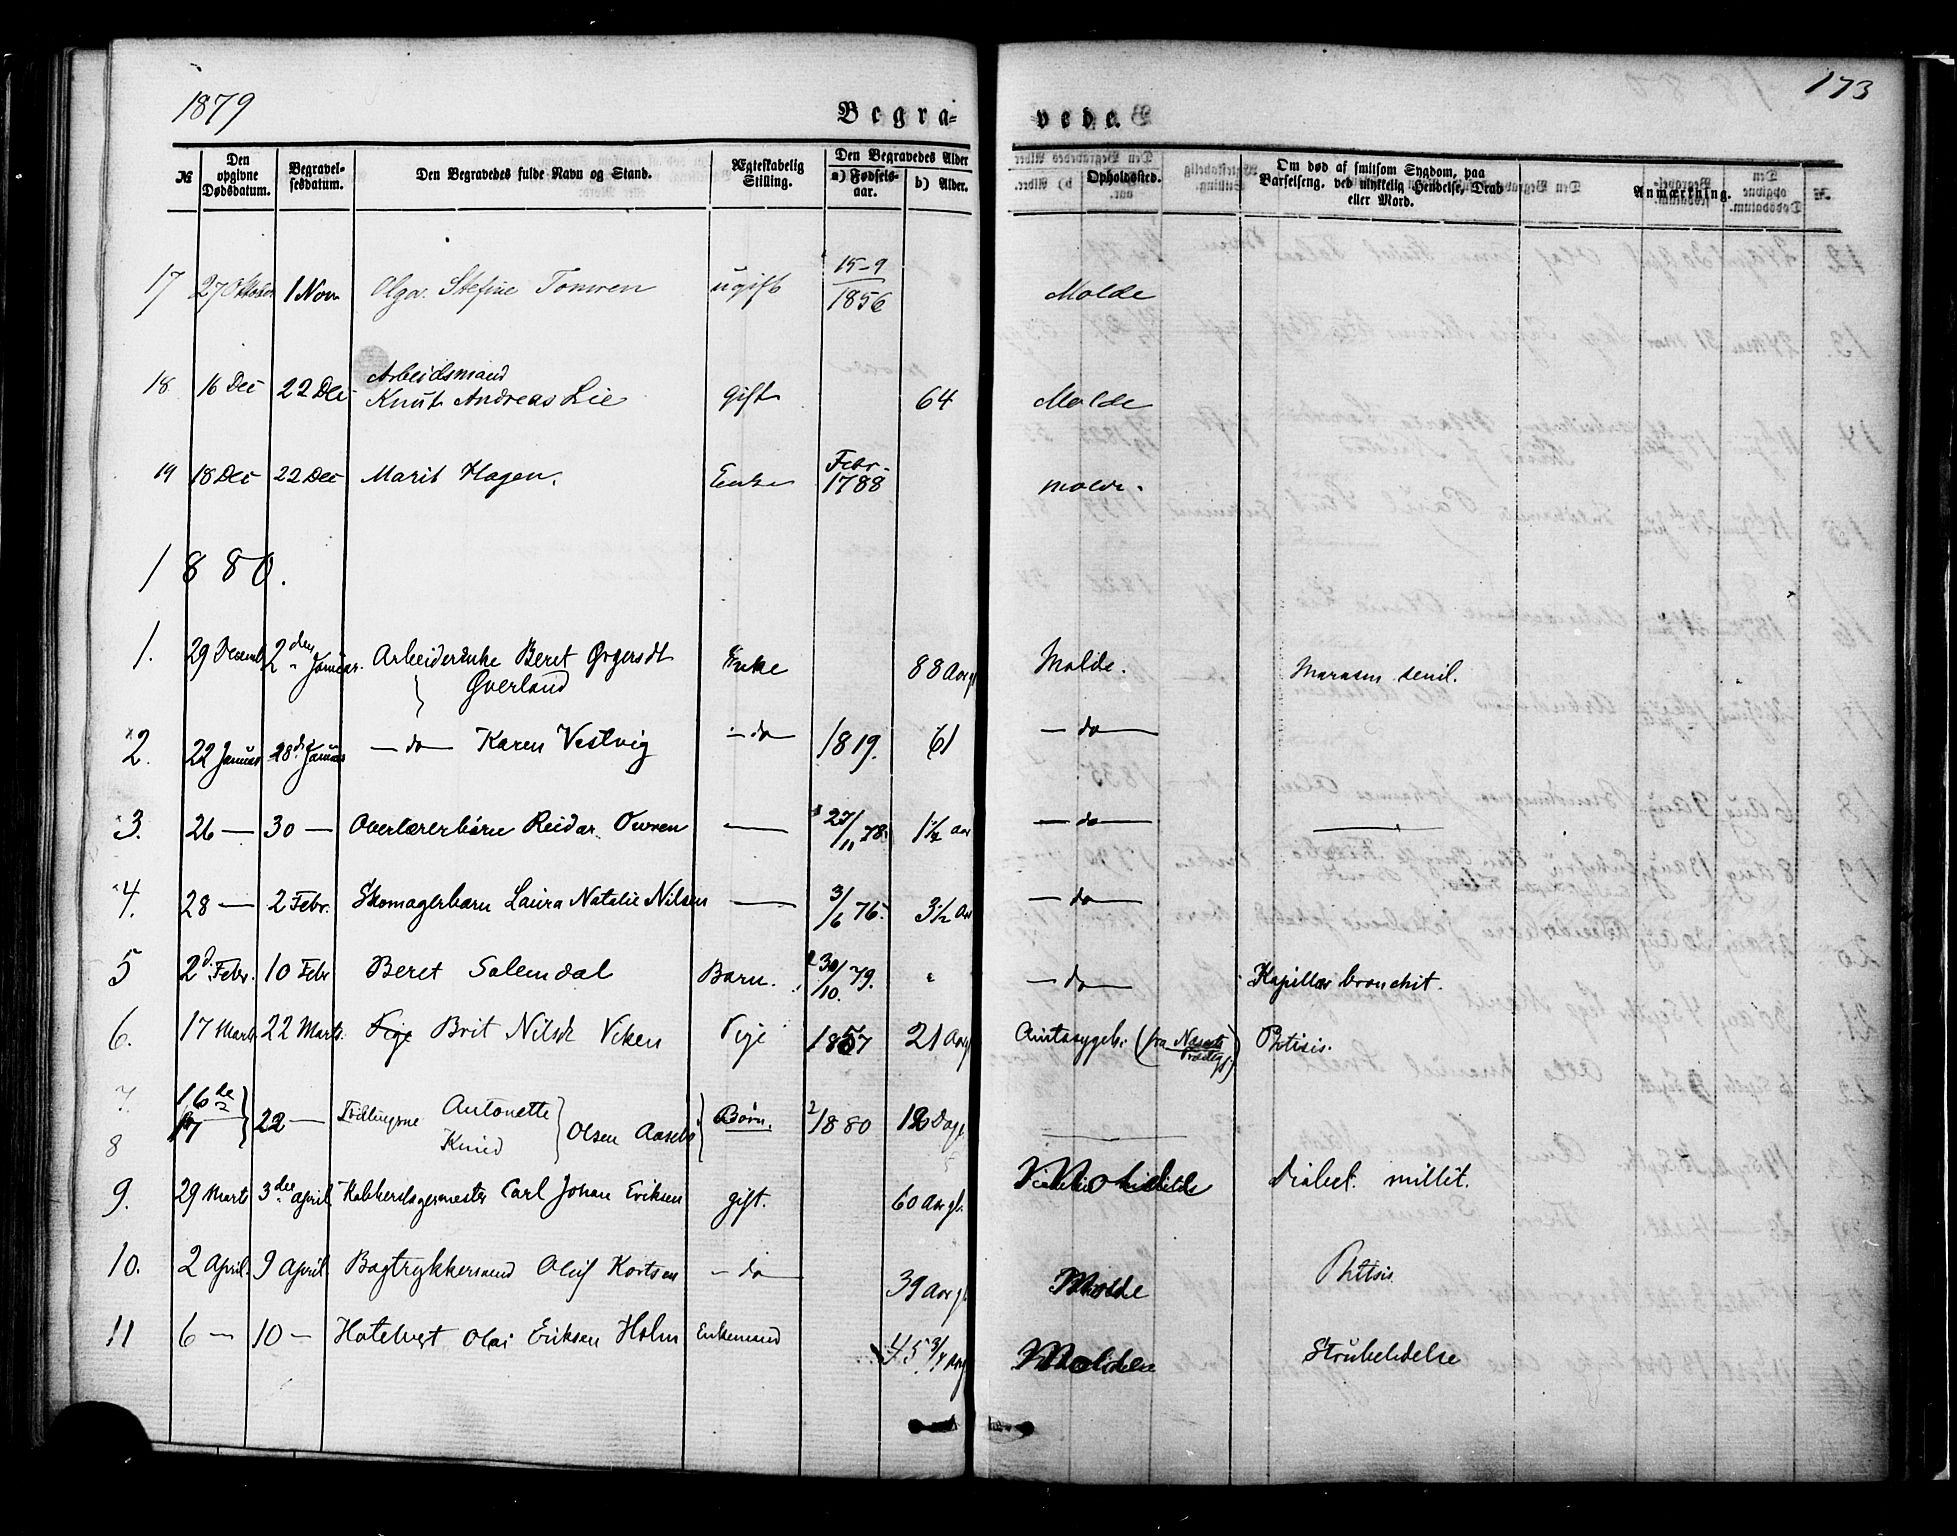 1879
Begra-
vede.
173
№
Den opgivne Dødsdatum.
Begravelsesdatum.
Den Begravedes fulde Navn og Stand.
Ægteskabelig Stilling.
Den Begravedes Alder
a) Fødselsaar.
b) Alder.
Opholdssted.
Om død af smitsom Sygdom, paa Barselseng, ved ulykkelig Hendelse, Drab eller Mord.
Anmærkning.
17 27 Oktober 1 Nov Olga Stefine ugift 15-9 1856 Molde
18 16 Dec 22 Dec Arbeidsmand
Knut Andreas Lie gift 64 Molde
19 18 Dec 22 Dec Marit Hagen. Enke Febr. 1788 Molde.
1880.
1. 29 Decemb. 2 den Januar. Arbeiderenke Beret Enke 88 Aar gl Molde. Marasm senil.
Øverland
2. 22 Januar 28 d. Januar - do - Karen Vestvig - do 1819. 61 - do -
3. 26 - 30 - Overlærerbarn Reidar Owren - 27/11 78. 1 1/4 Aar - do -
4. 28 - 2 Febr. Skomagerbarn Laura Natalie Nilsen - 3/6 76. 3 1/2 Aar - do -
5 2 d. Febr. 10 Febr Beret Solemdal Barn. 30/10. 79. " - do - Kapillær bronchit.
6. 17 Marts 22 Marts. Pige Brit Nilsd. Viken Pige 1857 21 Aar gl Amtssygeh. (fra Nesset Prædegj) Phtisis.
7. 16 de Tvillingerne Antonette
8 17 22 - Knud Olsen Børn. 1880 Dage
9. 29 Marts 3 die April Carl Johan Eriksen gift. 60 Aar gl. Diabet. millit.
10. 2 April. 9 April. Bogtrykkersvend Oluf Kortsen - do 39 Aar gl Molde Phtisis
11 6 - 10 - Hotelvert Olai Eriksen Holm Enkemand 45 3/4 Aar Strubelidelse